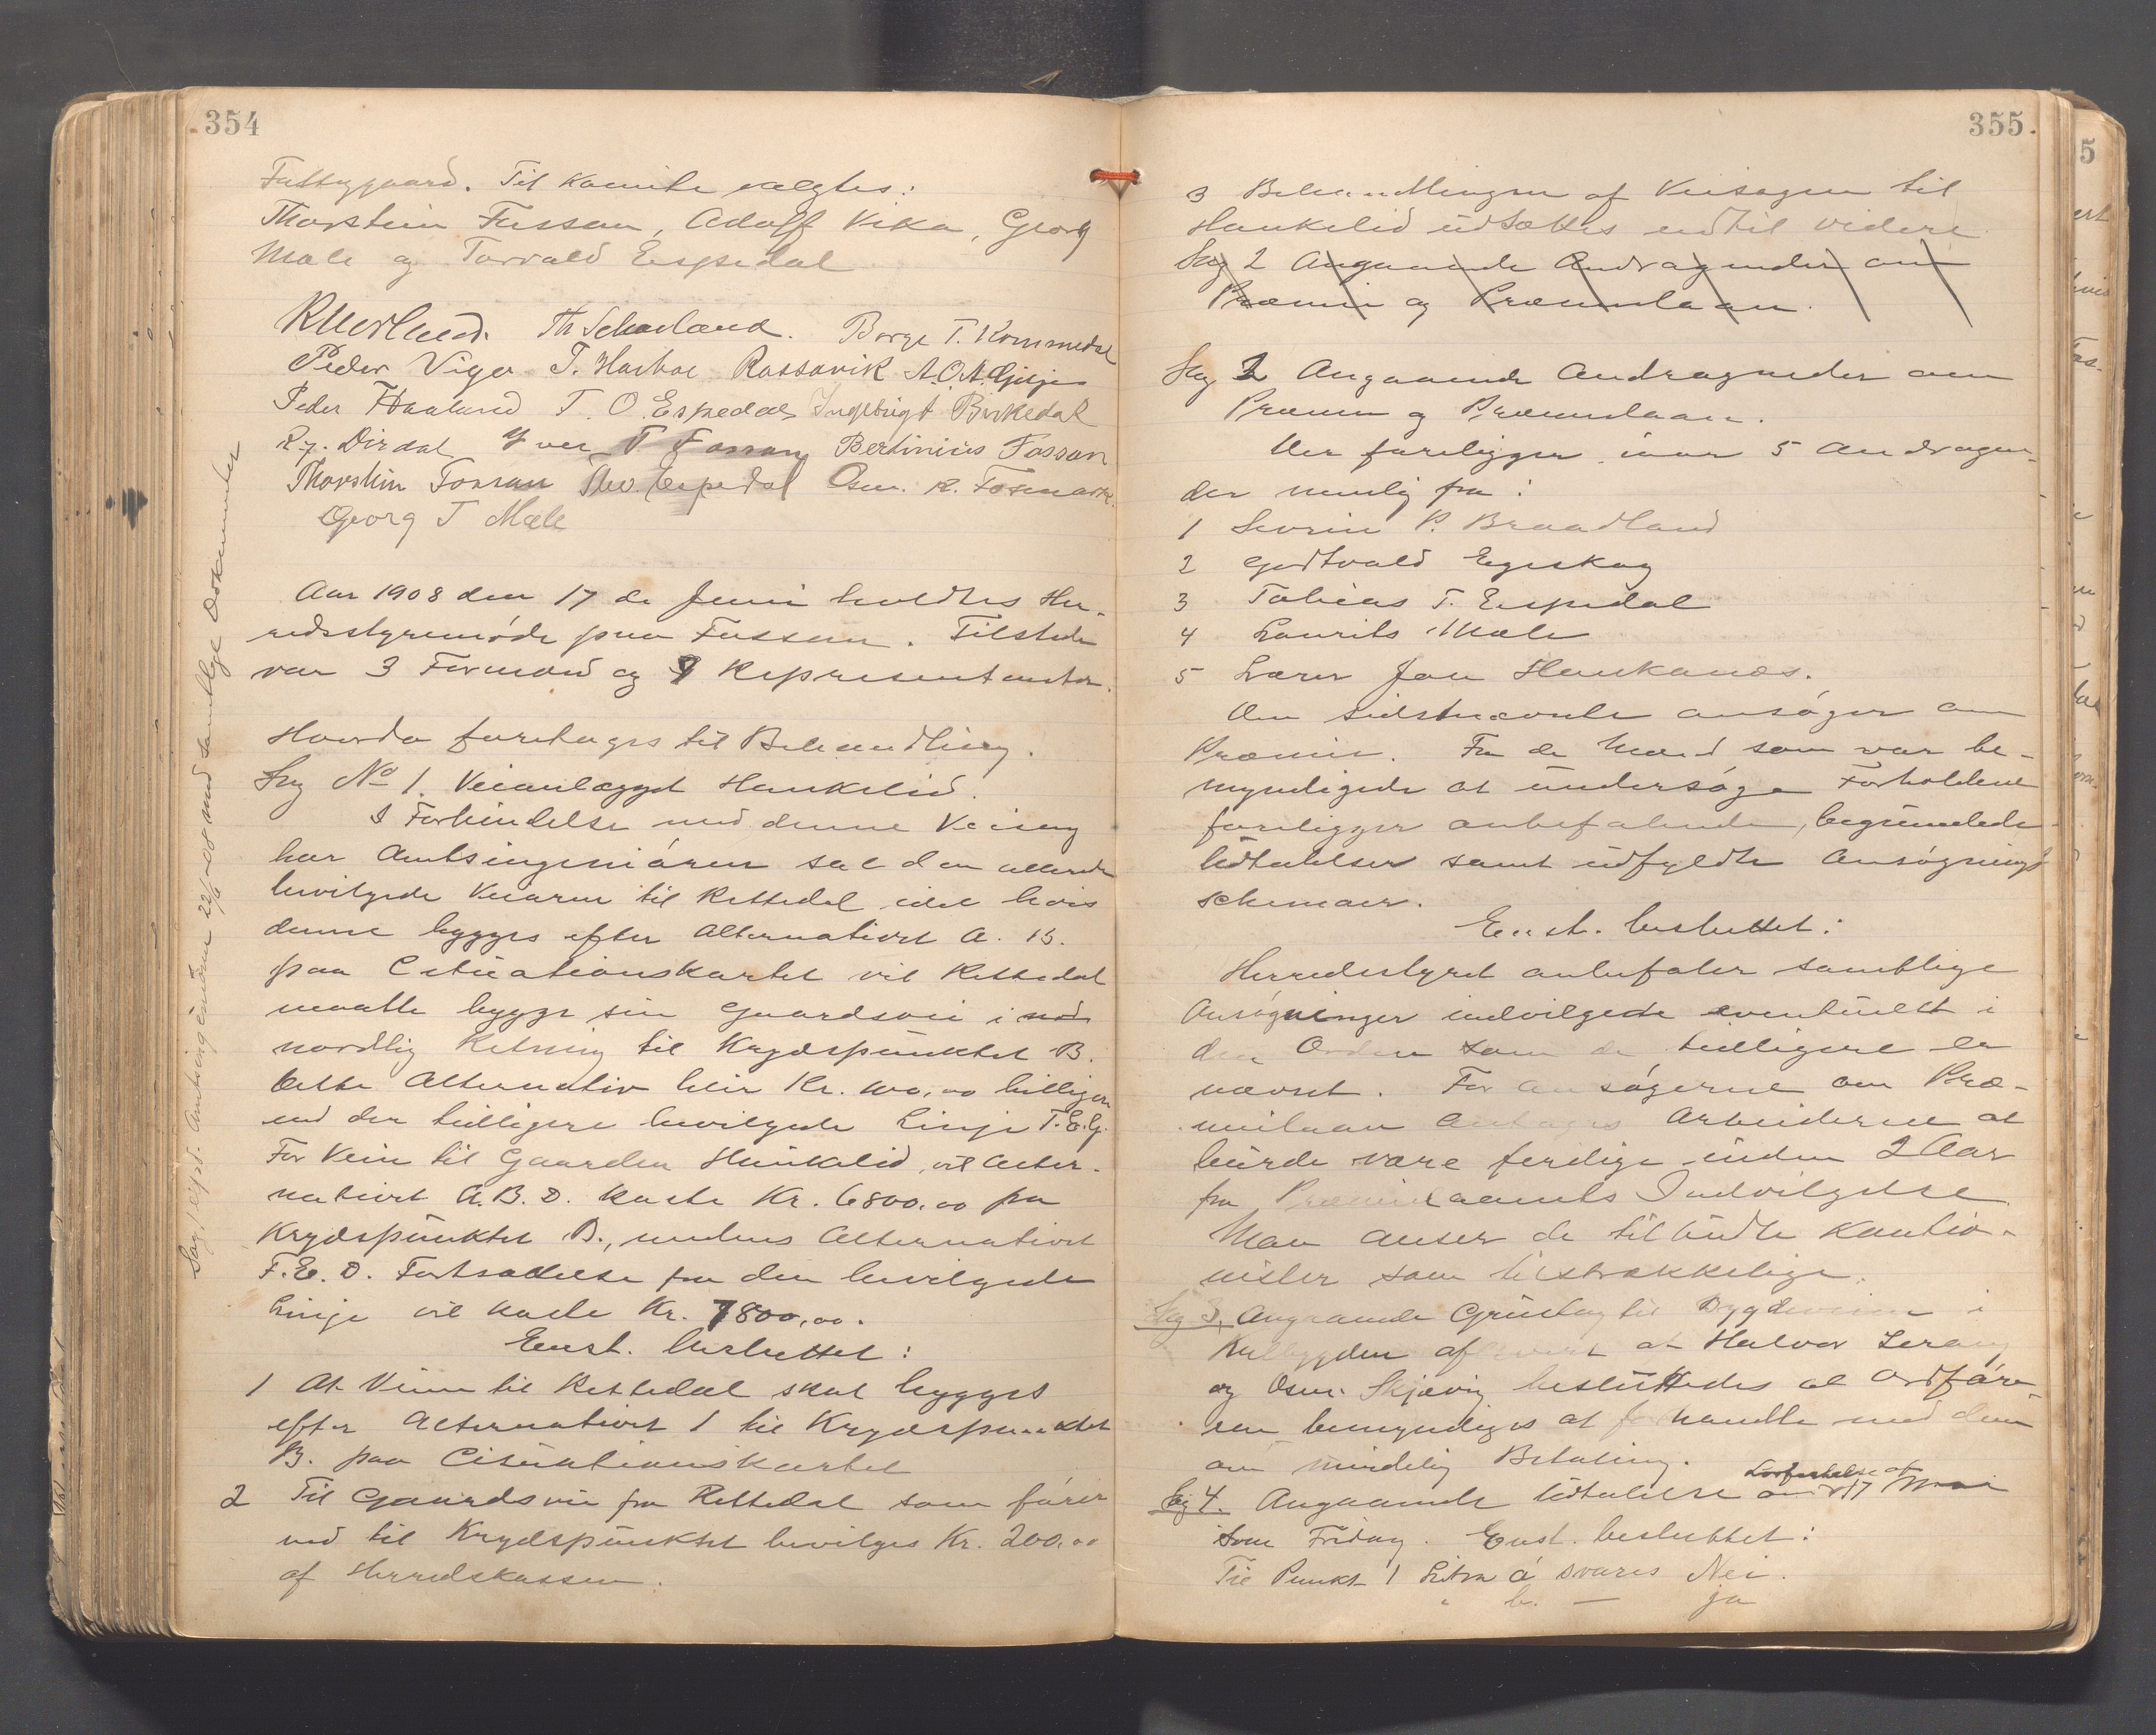 354
Fattiggaard. Til Komite valgtes:
Thorstein Fossan, Adolf Vika, Georg
Mæle og Torvald Espedal
Th Schavland. Borge T. Kommedal
Peder Viga T. Hasboe Rossavik A.O.A. Gilje
Peder Haaland T. O. Espedal Ingebrigt Birkedal
R. J. Dirdal Yver T Fossan Bertinius Fossan
Thorstein Fossan Thv. Espedal Osm. K. Fosmark
Georg T Mæle
Aar 1908 den 17 de Juni holdtes Her-
redsstyremøde paa Fossan. Tilstede
var 3 Formænd og 9 Representanter.
Hvorda foretages til Behandling.
Sag No 1. Veianlægget Haukelid.
I Forbindelse med denne Veisag
har Amtsingeniøren sat den allerede
bevilgede Veiarm til Rettedal idet hvis
denne bygges efter Alternativet A. B.
paa Cituationskartet vil Rettedal
maatte bygge sin Gaardsvei i nord
nordlig Retning til Krydspunktet B.
Dette Alternativ blir Kr. 100,00 billigere
end den tidligere bevilgede Linje F.E.G.
For Veien til Gaarden Haukalid, vil Alter-
nativet A.B.D. koste Kr. 6800,00 fra
Krydspunktet B., medens Alternativet
F.E.D. Fortsættelse fra den bevilgede
Linje vil koste Kr. 7800,00.
Enst. besluttet:
1 At Veien til Rettedal skal bygges
efter Alternativet 1 til Krydspunktet
B. paa Cituationskartet
2 Til Gaardsvei fra Rettedal som fører
ned til Krydspunktet bevilges Kr. 200,00
af Herredskassen.
Sag 1 exp. Amtsingeniøren 22/6 08 med samtlige Dokumenter
355.
3 Behandlingen af Veisagen til
Haukelid udsættes indtil videre
Sag 2 Angaaende Andragender om
Præmie og Præmielaan.
Sag 2 Angaaende Andragender om
Præmie og Præmielaan.
Der foreligger inar 5 Andragen-
der nemlig fra:
1 Sevrin P. Braadland
2 Godtvald Egeskog
3 Tobias T. Espedal
4 Laurits Mæle
5 Lærer Jon Haukanæs.
Den sidstnævnte ansøger om
Præmie. Fra de Mænd som var be-
myndigede at undersøge Forholdene
foreligger anbefalende, begrundede
Udtalelser samt udfyldte Ansøgnings
schemaer.
Enst. besluttet:
Herredsstyret anbefaler samtlige
Ansøgninger indvilgede eventuelt i
den Orden som de tidligere er
nævnt. For Ansøgerne om Præ-
mielaan antages Arbeiderne at
burde være ferdige inden 2 Aar
fra Præmielaanets Indvilgelse
Man anser de tilbudte Kautio-
nister som tilstrækkelige.
Sag 3, Angaaende Grustag til Bygdeveien i
af at Halvor Lerang
og Osm. Skjævig besluttedes at Ordføre-
ren bemyndiges at forhandle med dem
om mindelig Betaling.
Sag 4. Angaaende Udtalelse om Lovfæstelse af 17 Mai
som Fridag. Enst. besluttet:
Til Punkt 1 Litra a svares Nei.
" b. — ja